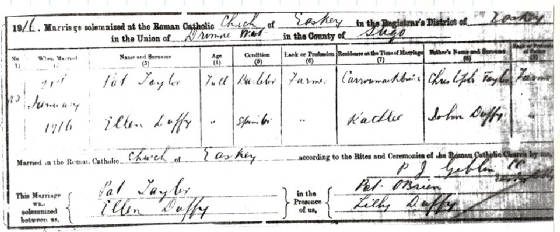 1916. Marriage solemnized at the Roman Catholic Church of Easkey in the Registrar's District of Easkey
in the Union of Dromore West in the County of Sligo
No. When Married Name and Surname Age Condition Rank or Profession Residence at the Time of Marriage Father's Name and Surname Rank or Profession of Father
(1) (2) (3) (4) (5) (6) (7) (8)
Pat Taylor Full Bachelor Farmer Christopher Taylor Farmer
January
1916 Ellen Duffy " Spinster " John Duffy "
Married in the Roman Catholic Church of Easkey according to the Rites and Ceremonies of the Roman Catholic Church by me,
P J Geblin CC
This Marriage was solemnized between us, Pat Taylor Ellen Duffy in the Presence of us, Pat O'Brien Lilly Duffy